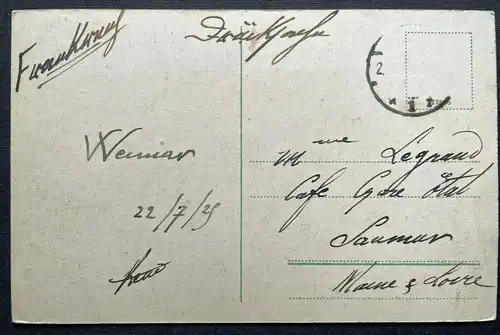 Frankreich
Drucksache
2.
Weimar
22/7/25
Mme Legrand
Café Gare État
Saumur
Maine & Loire